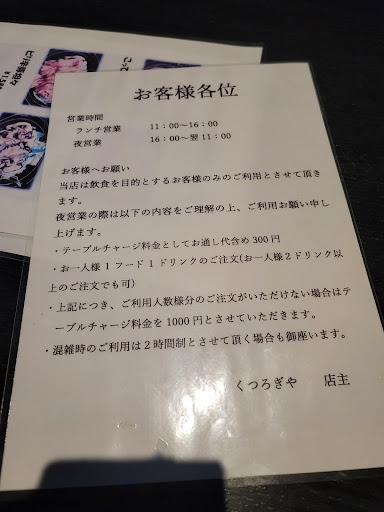 お客様各位
営業時間
ランチ営業 11：00～16：00
夜営業 16：00～翌11：00
お客様へお願い
当店は飲食を目的とするお客様のみのご利用とさせて頂き
ます。
夜営業の際は以下の内容をご理解の上、ご利用お願い申し
上げます。
・テーブルチャージ料金としてお通し代含め300円
・お一人様1フード1ドリンクのご注文(お一人様2ドリンク以
上のご注文でも可)
・上記につき、ご利用人数様分のご注文がいただけない場合はテ
ーブルチャージ料金を1000円とさせていただきます。
・混雑時のご利用は2時間制とさせて頂く場合も御座います。
くつろぎや 店主